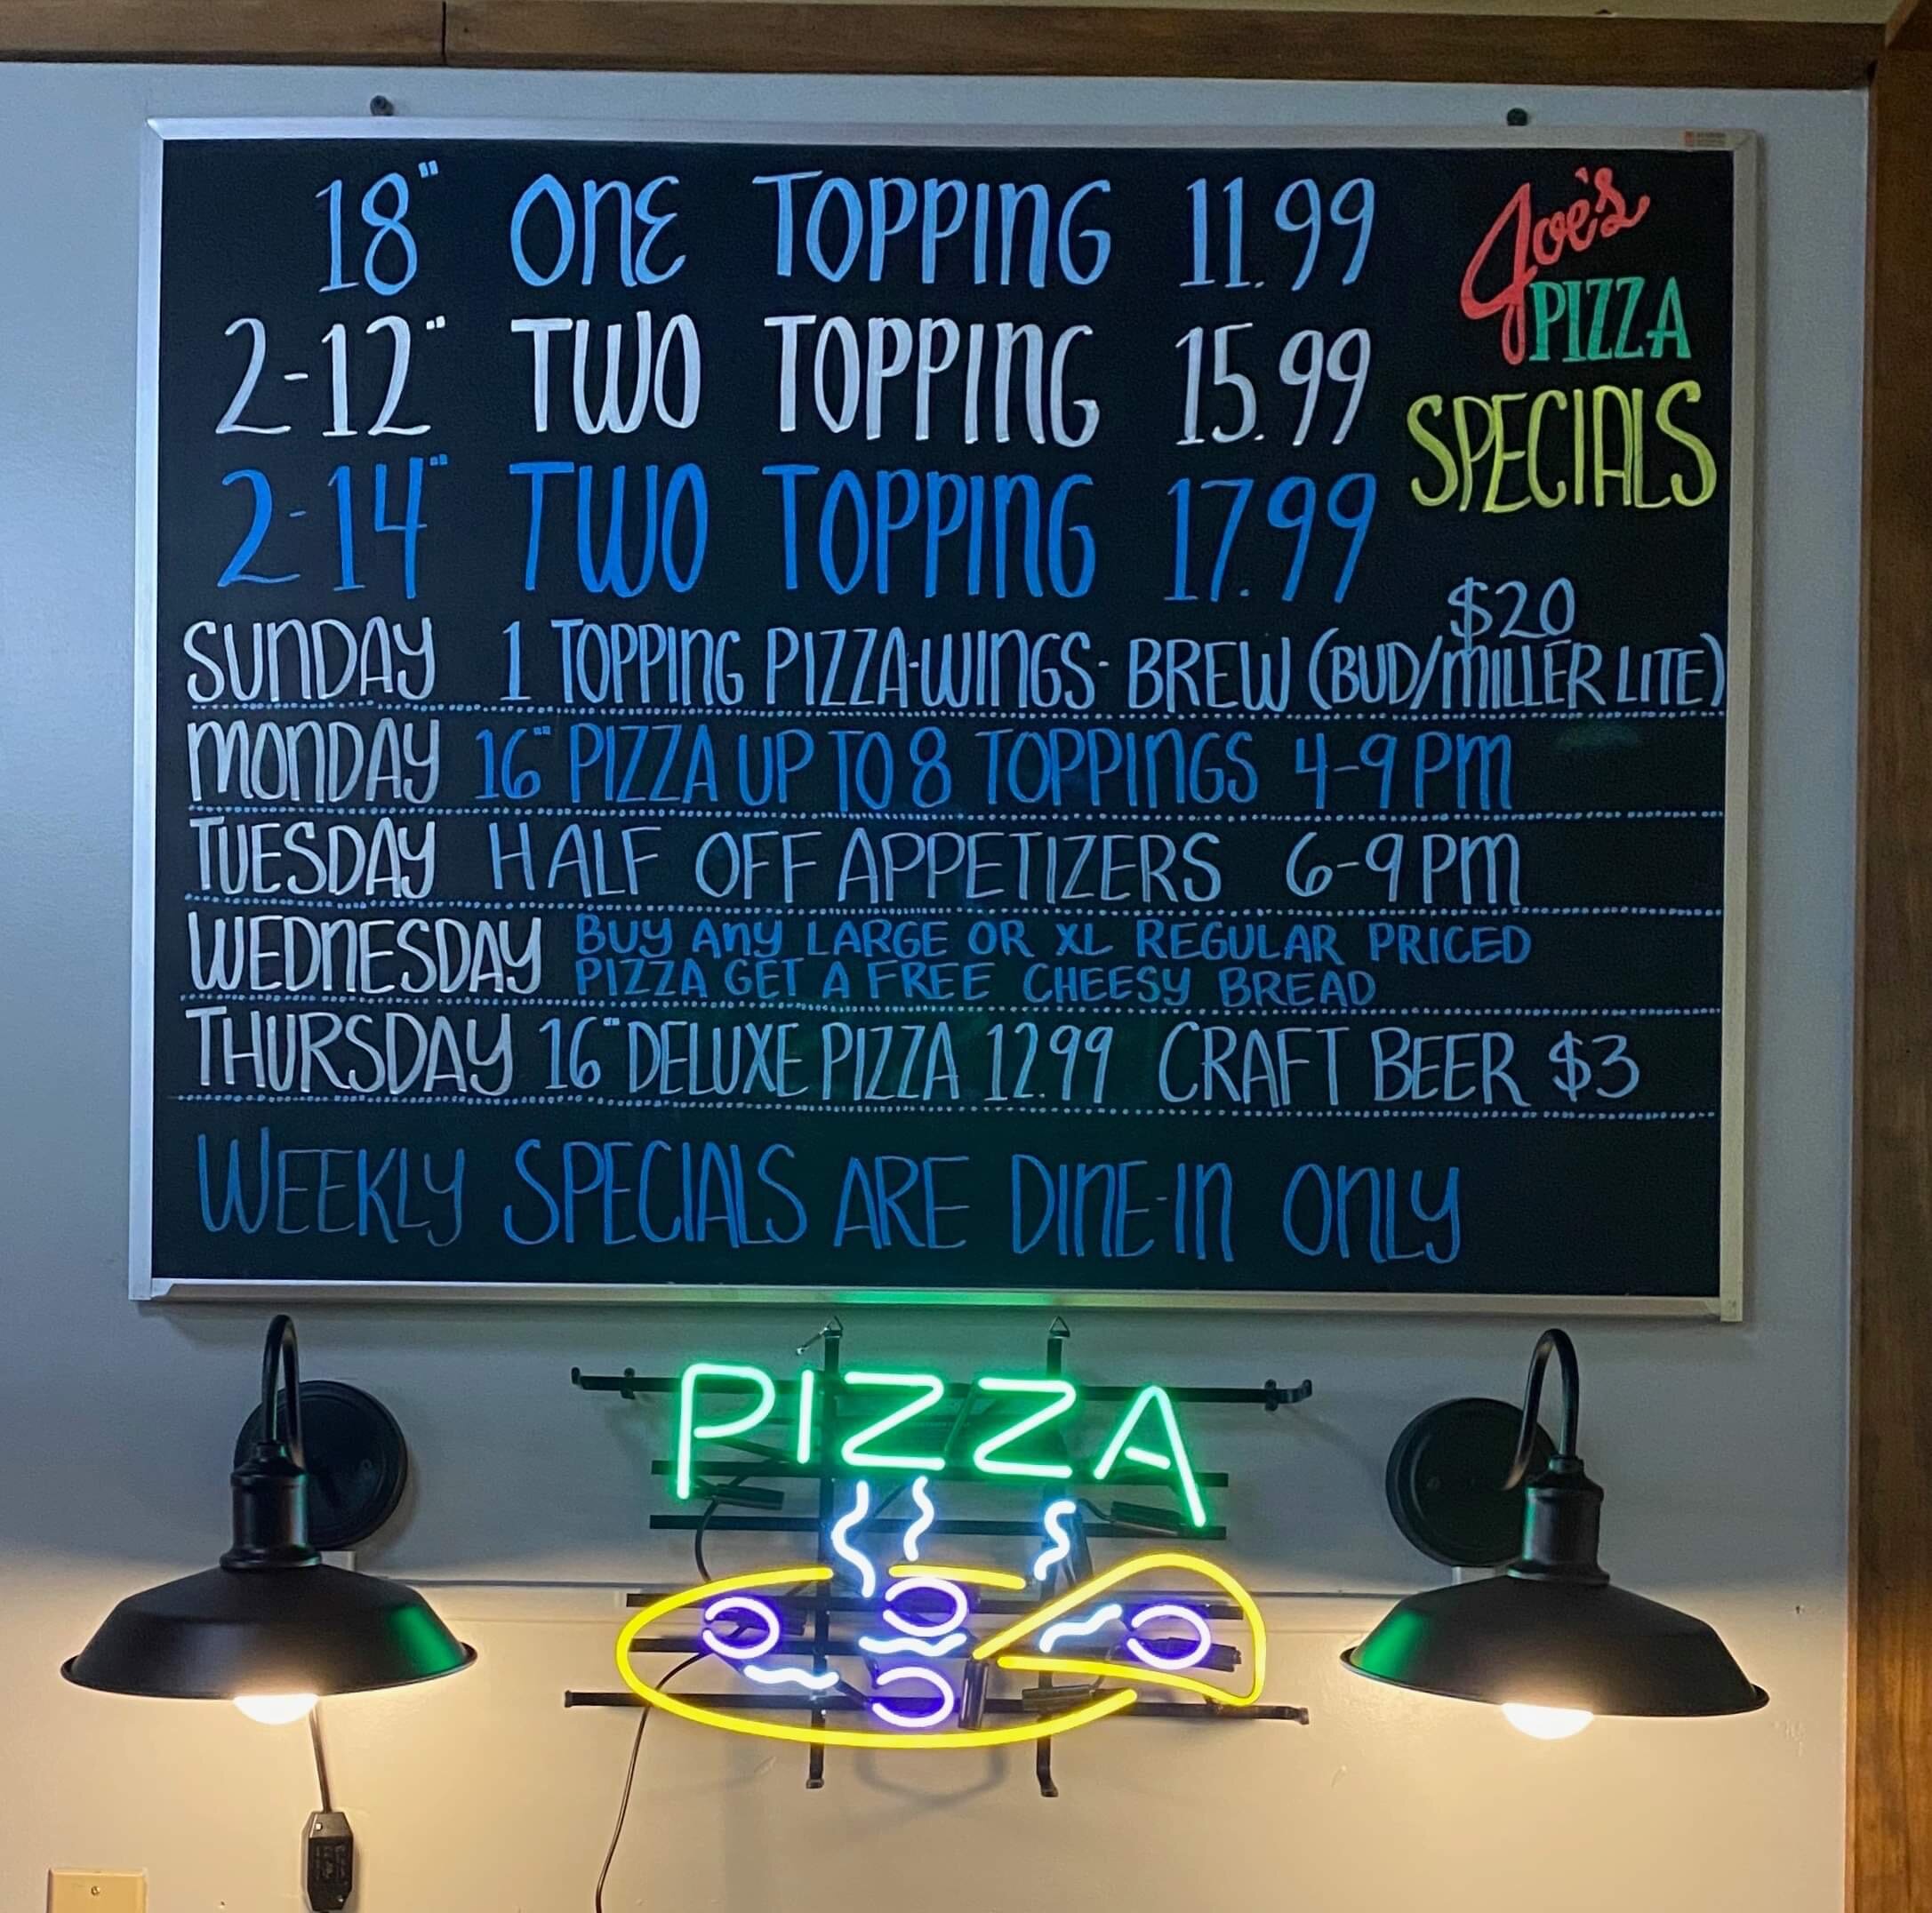 18" ONE TOPPING 11.99
2-12" TWO TOPPING 15.99
2-14" TWO TOPPING 17.99
Joe's
PIZZA
SPECIALS
$20
SUNDAY 1 TOPPING PIZZA-WINGS- BREW (BUD/MILLER LITE)
MONDAY 16" PIZZA UP TO 8 TOPPINGS 4-9 PM
TUESDAY HALF OFF APPETIZERS 6-9 PM
WEDNESDAY BUY ANY LARGE OR XL REGULAR PRICED
PIZZA GET A FREE CHEESY BREAD
THURSDAY 16" DELUXE PIZZA 12.99 CRAFT BEER $3
WEEKLY SPECIALS ARE DINE-IN ONLY
PIZZA